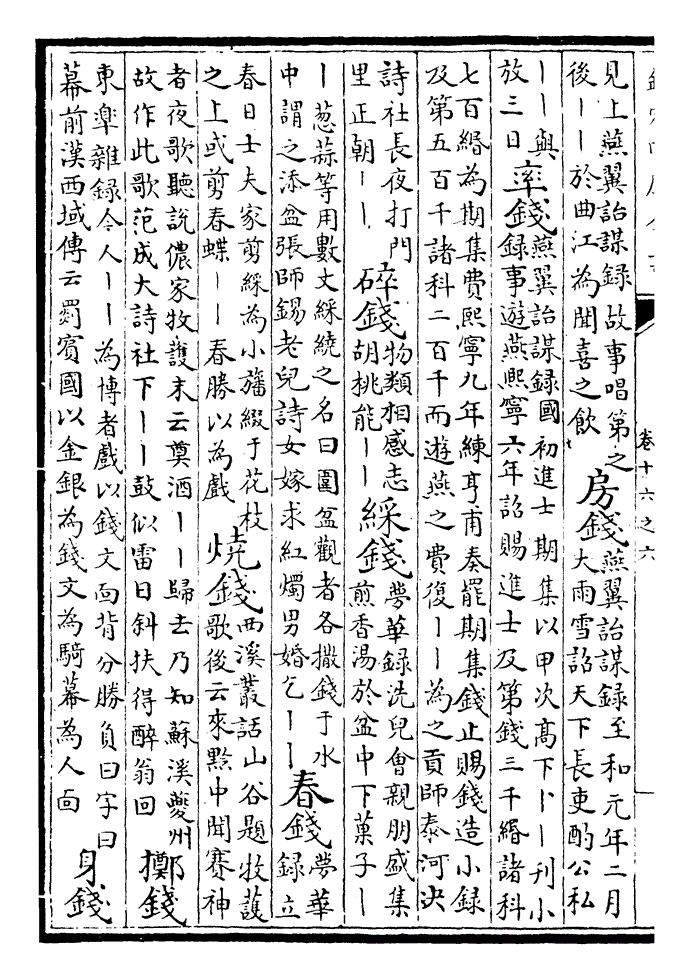 卷十六之六
見上燕翼詒謀録故事唱第之
後丨丨於曲江為聞喜之飲
房錢
燕翼詒謀録至和元年二月
大雨雪詔天下長吏酌公私
丨丨與
放三日
率錢
燕翼詒謀録國初進士期集以甲次高下卜丨丨刊小
録事遊燕熙寧六年詔賜進士及第錢三千緡諸科
七百緡為期集費熙寧九年練亨甫奏罷期集錢止賜錢造小録
及第五百千諸科二百千而遊燕之費復丨丨為之貢師泰河決
詩社長夜打門
里正朝丨丨
碎錢
物類相感志
胡桃能丨丨
綵錢
夢華録洗兒會親朋盛集
煎香湯於盆中下菓子丨
丨葱蒜等用數丈綵繞之名曰圍盆觀者各撒錢于水
中謂之添盆張師錫老兒詩女嫁求紅燭男婚乞丨丨
春錢
夢華
録立
春日士大夫家剪綵為小旛綴于花枝
之上或剪春蝶丨丨春勝以為戲
燒錢
西溪叢話山谷題牧護
歌後云來黔中聞賽神
者夜歌聽說儂家牧護末云奠酒丨丨歸去乃知蘇溪夔州
故作此歌范成大詩社下丨丨丨鼓似雷日斜扶得醉翁回
擲錢
東臯雜録今人丨丨為博者戲以錢文面背分勝負曰字曰
幕前漢西域傳云罽賓國以金銀為錢文為騎幕為人面
身錢